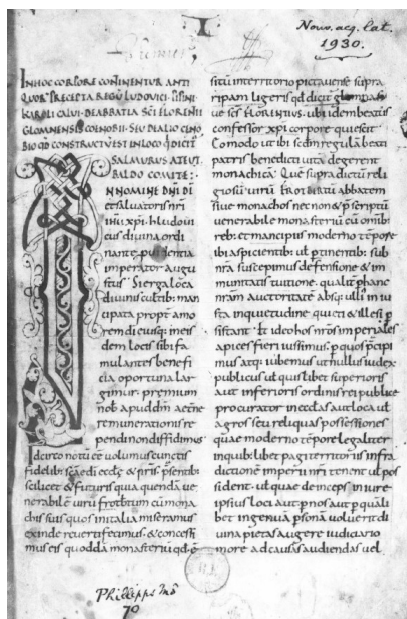 I
Nouv. acq. lat.
1930.
IN HOC CORPORE CONTINENTUR ANTI
QUORU PRECEPTA REGU LUDOVICI PIPINI
KAROLI CALVI DE ABBATIA SCI FLORENTII
GLOMNENSIS COENOBII SEU DE ALIO CENO
BIO QD CONSTRUCTU EST IN LOCO QD DICIT
SALMURUS A TEUT
BALDO COMITE:
IN NOMINE DNI DI
ET SALVATORIS NRI
ihu xpi hludoui
cus diuina ordi
nante prouidentia
imperator augu
stus. Si erga loca
diuinis cultib: man
cipata propt amo
rem di eiusq: in eis
dem locis sibi fa
mulantes benefi
cia oportuna lar
gimur. premium
nob apud dnm aetne
remunerationis re
pendi non diffidimus
Idcirco notu ee uolumus cunctis
fidelib: scae di eccle & nris psentib:
scilicet & futuris quia quenda ue
nerabile uiru frotbertum cu mona
chis suis quos in italia miseramus
exinde reuerti fecimus. & concessi
mus eis quodda monasteriu qd e
situ in territorio pictauense supra
ripam ligeris qd dicit glomna
ue scs FLORENTIUS. ubi idem beatus
confessor xpi corpore quiescit
Comodo ut ibi scdm regula beati
patris benedicti uita degerent
monachica. Que supra dictu reli
giosu uiru FROTBERTU abbatem
siue monachos nec non & pscriptu
uenerabile monasteriu cu omib:
reb: et mancipiis moderno tepore
ibi aspicientib: ul ptinentib: sub
nra suscepimus defensione & im
munitatis tuitione. qualit p hanc
nram auctoritate absq: ulli in iu
sta inquietudine quieti & illesi p
sistant. Et ideo hos nros imperiales
apices fieri iussimus. p quos pcipi
mus atq: iubemus ut nullus iudex
publicus ul quislibet superioris
aut inferioris ordinis rei publice
procurator in ecclas aut loca ul
agros seu reliquas possessiones
quae moderno tepore legaliter
in quib:libet pagi territoriis infra
dictione imperii nri tenent ul pos
sident. ul quae deinceps in iure
ipsius loci aut p nos aut p quali
bet ingenua psona uoluerit di
uina pietas augere iudiciario
more ad causas audiendas uel
Phillipps Ms
70